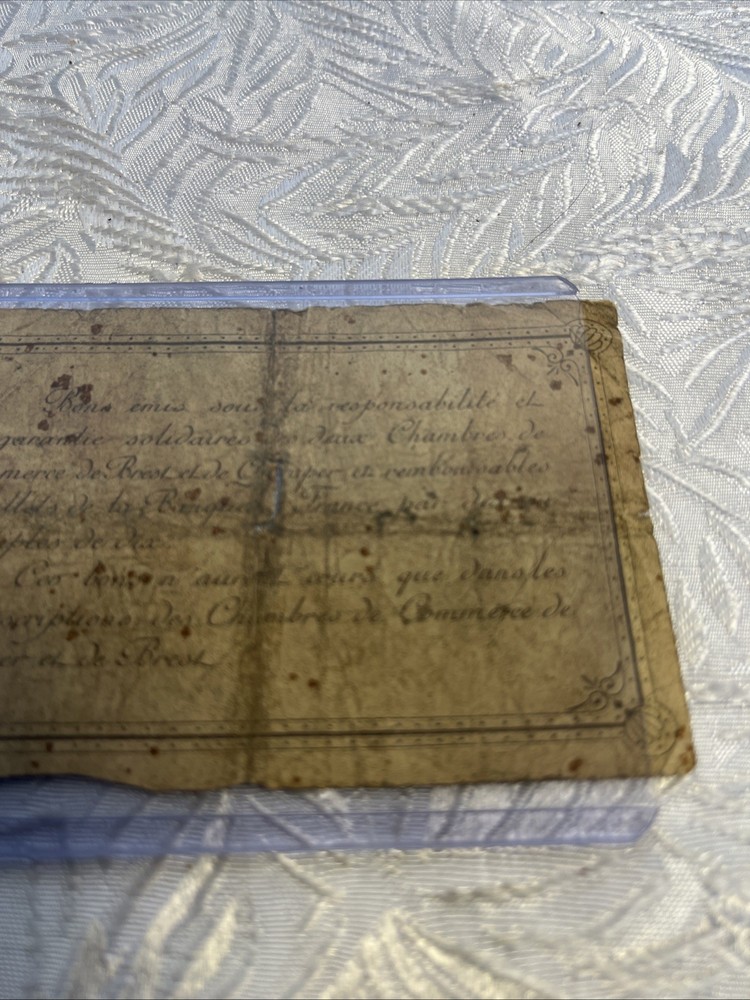 Bons émis sous la responsabilité et
garantie solidaires des deux Chambres de
mmerce de Brest et de Q aper et remboursables
llets de la Banque France par
mples de dix.
Ces bons n'auront cours que dans les
scriptions des Chambres de Commerce de
er et de Brest